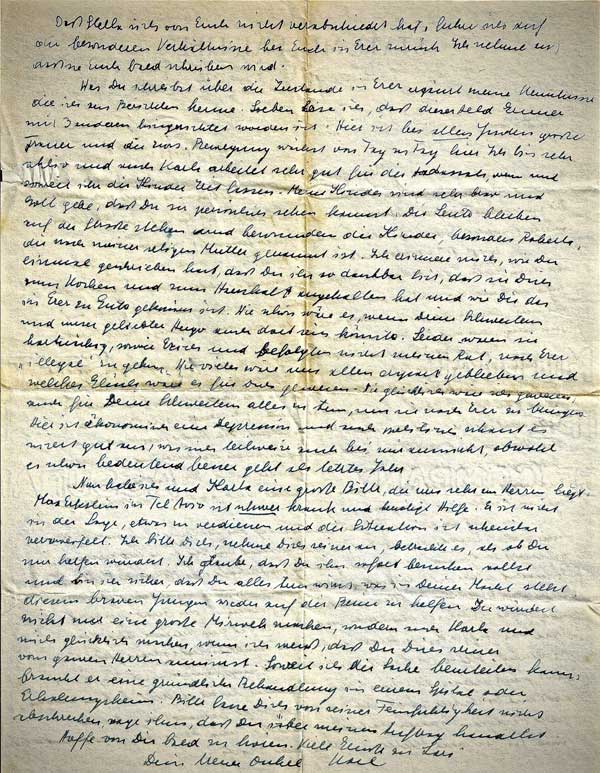 Dass Stella sich von Euch nicht verabschiedet hat, führe ich auf
die besonderen Verhältnisse bei Euch in Erez zurück. Ich nehme an,
dass sie Euch bald schreiben wird.
Was Du schreibst über die Zustände in Erez meine Kenntnisse
die ich aus Berichten kenne. Soeben lese ich, dass
mit 3 andern hingerichtet worden ist. Hier ist bei allen Juden grosse
Trauer und die zion. Bewegung wächst von Tag zu Tag hier. Ich bin sehr
aktiv und auch Karla arbeitet sehr gut für die Hadassah, wenn und
soweit ihr die Kinder Zeit lassen. Meine Kinder sind sehr brav und
Gott gebe, dass Du sie persönlich sehen kannst. Die Leute bleiben
auf der Strasse stehen und bewundern die Kinder, besonders Roberta,
die nach meiner seligen Mutter genannt ist. Ich erinnere mich, wie Du
einmal geschrieben hast, dass Du ihr so dankbar bist, dass sie Dich
zum Kochen und zum Haushalt angehalten hat und wie Dir das
in Erez zu Gute gekommen ist. Wie schön wäre es, wenn Deine Schwestern
und unser geliebter Hugo auch dort sein könnte. Leider waren sie
und befolgten nicht meinen Rat, nach Erez
"illegal" zu gehen. Wie vieles wäre uns allen erspart geblieben und
welches Glück wäre es für Dich gewesen. Wie glücklich wäre ich gewesen,
auch für Deine Schwestern alles zu tun, um sie nach Erez zu bringen.
Hier ist ökonomisch eine Depression und auch politisch schaut es
nicht gut aus, was sich teilweise auch bei uns auswirkt, obwohl
es schon bedeutend besser geht als letztes Jahr.
Nun habe ich und Karla eine grosse Bitte, die uns sehr am Herzen liegt.
Max Epstein in Tel Aviv ist schwer krank und benötigt Hilfe. Er ist nicht
in der Lage, etwas zu verdienen und die Situation ist scheinbar
verzweifelt. Ich bitte Dich, nehme Dich seiner an, betrachte es, als ob Du
mir helfen würdest. Ich glaube, dass Du ihn sofort besuchen sollst
und bin ich sicher, dass Du alles tun wirst, was in Deiner Macht steht
diesem braven Jungen wieder auf die Beine zu helfen. Du würdest
nicht nur eine grosse Mizwah machen, sondern auch Karla und
mich glücklich machen, wenn ich weiss, dass Du Dich seiner
vom ganzen Herzen annimmst. Soweit ich die Sache beurteilen kann,
braucht er eine gründliche Behandlung in einem Spital oder
Erholungsheim. Bitte lasse Dich von seiner Feinfühligkeit nicht
abschrecken, sage ihm, dass Du über meinen Auftrag handelst
Hoffe von Dir bald zu hören. Viele Grüsse an
Dein Onkel Karl